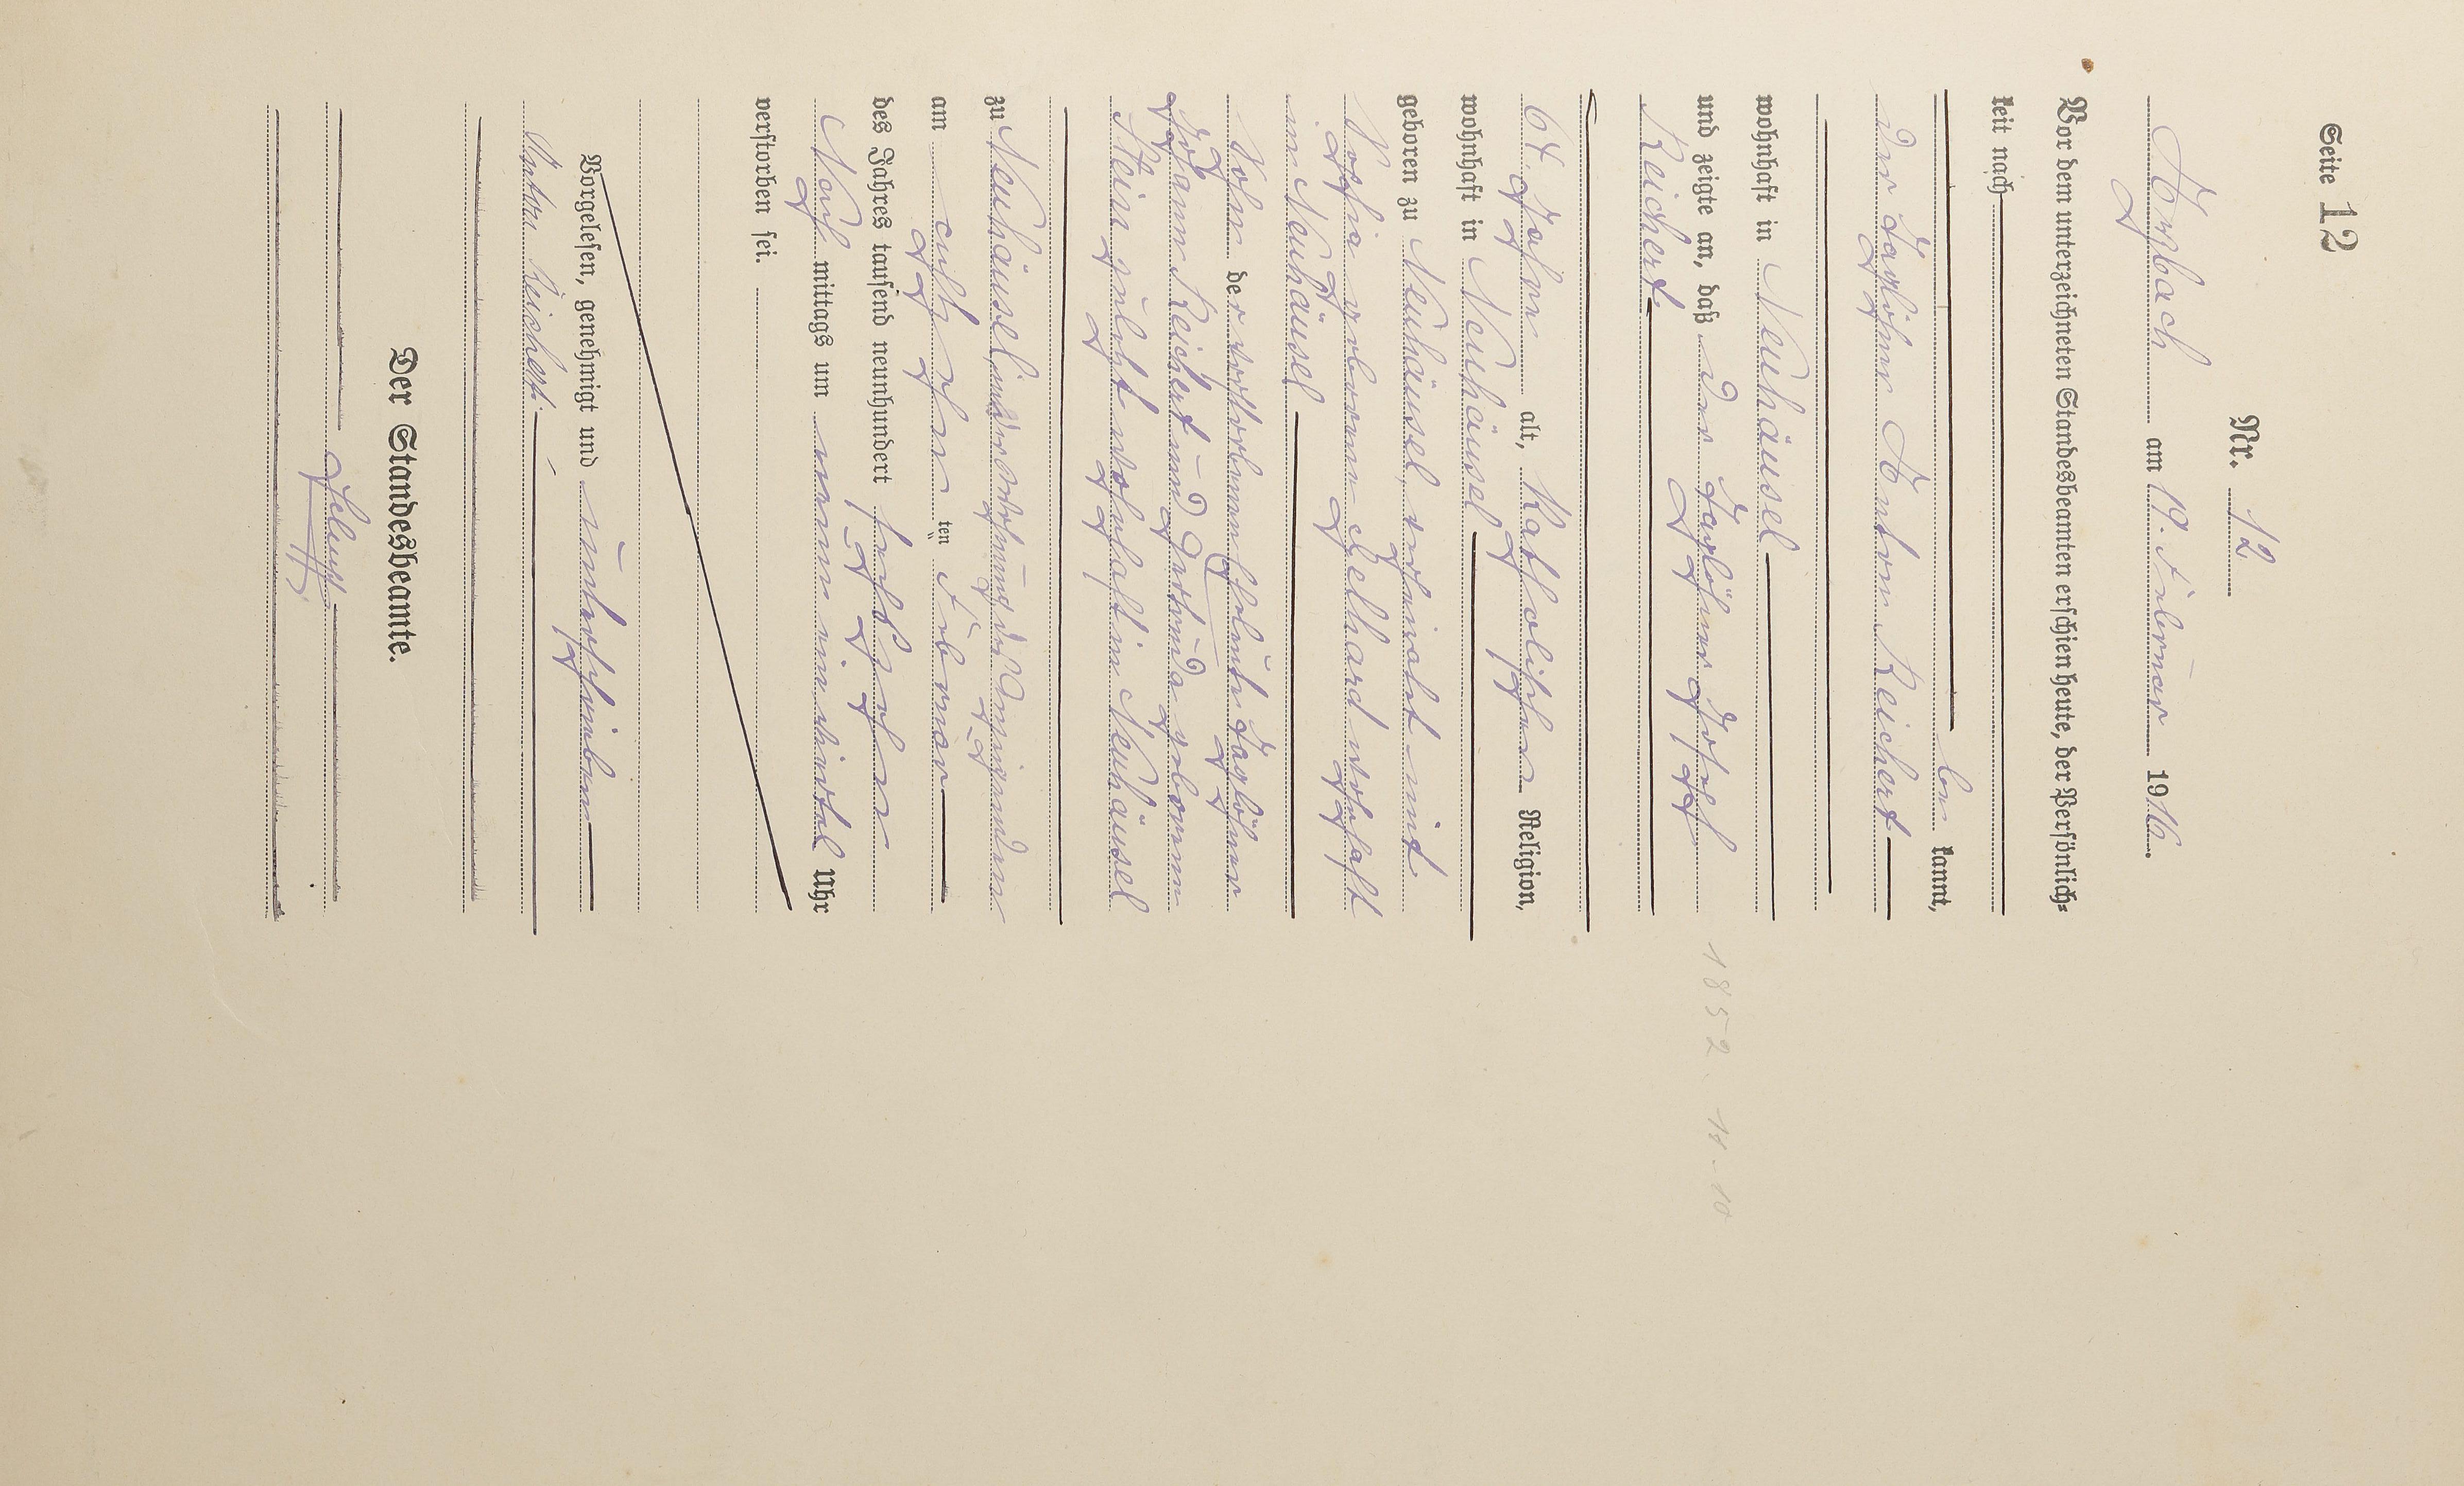 Seite 12
Nr. 12
Kirrbach am 19. Februar 1916.
Vor dem unterzeichneten Standesbeamten erschien heute, der Persönlich-
keit nach
be kannt,
der Taglöhner Anton Reichert
wohnhaft in Neuhäusel
und zeigte an, daß der Taglöhner Josef
Reichert
64 Jahre alt, katholischer Religion,
wohnhaft in Neuhäusel
geboren zu Neuhäusel, verheiratet mit
Sofia geborenen Bellhard wohnhaft
in Neuhäusel
Sohn der verstorbenen Eheleute Taglöhner
Johann Reichert und Gertrude geborenen
Stein zuletzt wohnhaft in Neuhäusel
zu Neuhäusel in der Wohnung des Anzeigenden
am achtzehn ten Februar
des Jahres tausend neunhundert sechzehn
Nach mittags um neun ein viertel Uhr
verstorben sei.
Vorgelesen, genehmigt und unterschrieben
Anton Reichert.
Der Standesbeamte.
1852 – 14 – 10